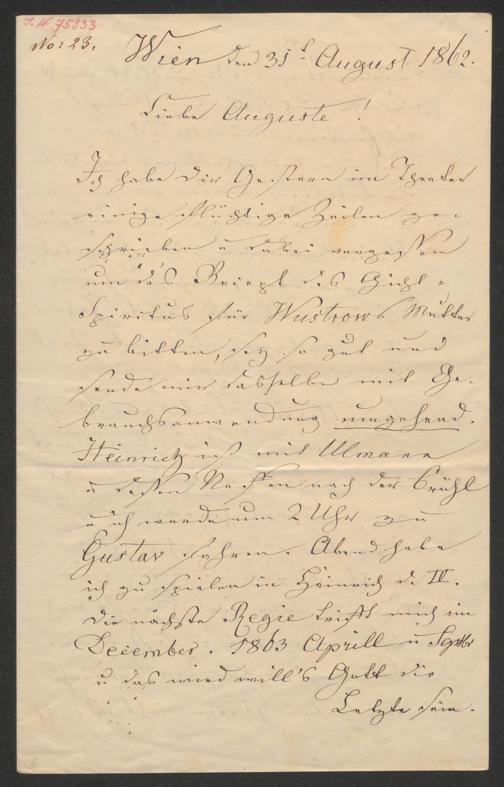 J. N 75833
No: 23.
Wien den 31t August 1862.
Liebe Auguste!
Ich habe Dir Gestern im Theater
einige flüchtige Zeilen ge-
schrieben u dabei vergessen
um das Recept des Gicht-
Spiritus für Wustrows Mutter
zu bitten, sey so gut und
sende mir dasselbe mit Ge-
brauchsanwendung umgehend.
Heinrich ist mit Ulmann
u dessen Neffen nach der Brühl
u ich werde um 2 Uhr zu
Gustav fahren. Abend habe
ich zu spielen in Heinrich d. IV.
Die nächste Regie trifft mich im
December. 1863 Aprill u Septbr
u das wird will's Gott die
Letzte sein.